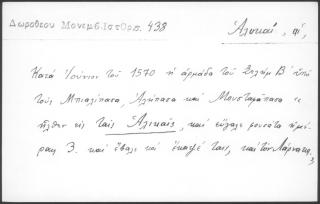 Δωροθεου Μονεμβ. Ιστορ. 438
Ἁλικαί, αἱ,
Κατά Ἰούνιον τοῦ 1570 ἡ ἁρμάδα τοῦ Σελήμ Β΄ ὑπό
τούς Μπιαλήπασα, Ἀλήπασα καί Μουσταφάπασα «
ἦλθεν εἰς ταῖς Ἁλικαῖς, καί εὔγαλε φουσάτα ἡμέ-
ραις 3. καί ἔβαλε καί ἔκαψέ ταις, καί τόν Λάρνακα,